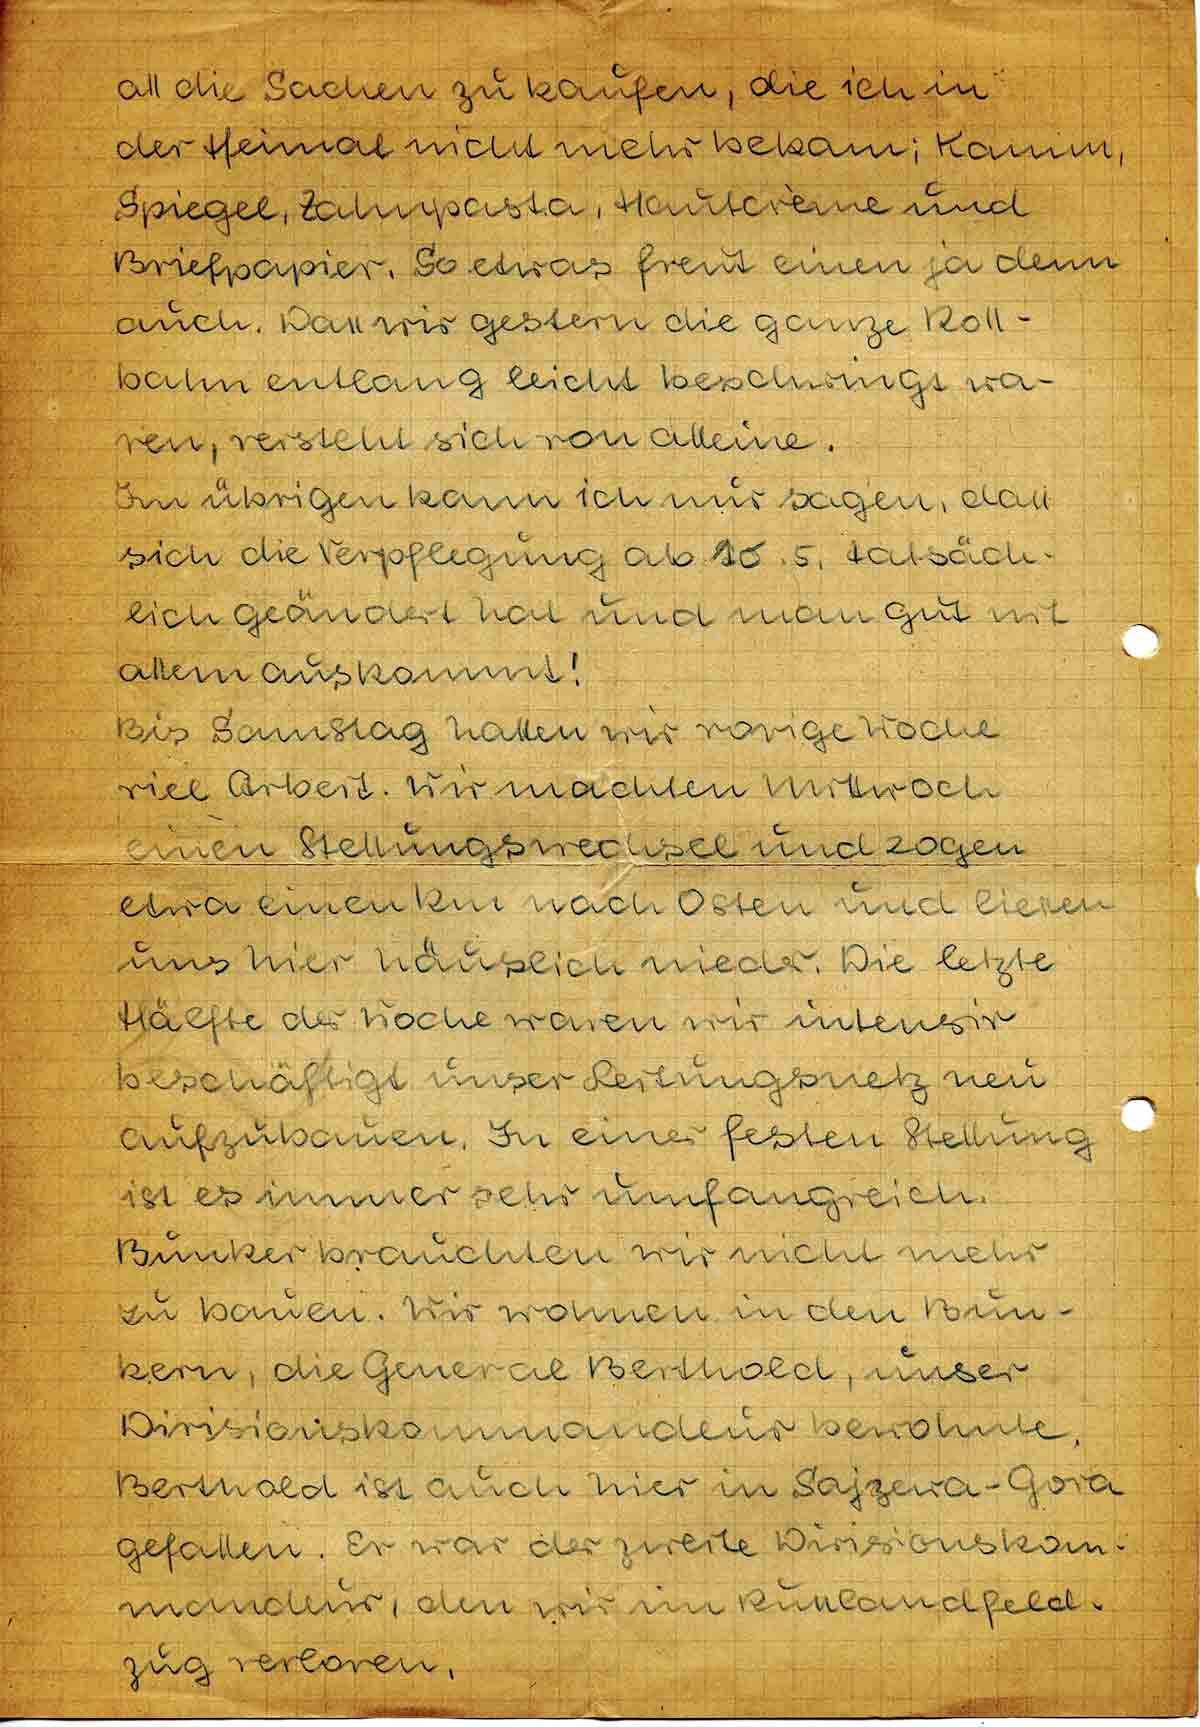 all die Sachen zu kaufen, die ich in
der Heimat nicht mehr bekam; Kamm,
Spiegel, Zahnpasta, Hautcrème und
Briefpapier. So etwas freut einen ja denn
auch. Dass wir gestern die ganze Roll-
bahn entlang leicht beschwingt wa-
ren, versteht sich von alleine.
Im übrigen kann ich nur sagen, dass
sich die Verpflegung ab 16.5. tatsäch-
lich geändert hat und man gut mit
allem auskommt!
Bis Samstag hatten wir vorige Woche
viel Arbeit. Wir machten Mittwoch
einen Stellungswechsel und zogen
etwa einen km nach Osten und liessen
uns hier häuslich nieder. Die letzte
Hälfte der Woche waren wir intensiv
beschäftigt unser Leitungsnetz neu
aufzubauen. In einer festen Stellung
ist es immer sehr umfangreich.
Bunker brauchten wir nicht mehr
zu bauen. Wir wohnen in den Bun-
kern, die General Berthold, unser
Divisionskommandeur bewohnte.
Berthold ist auch hier in Sajzewa-Gora
gefallen. Er war der zweite Divisionskom-
mandeur, den wir im Russlandfeld-
zug verloren.